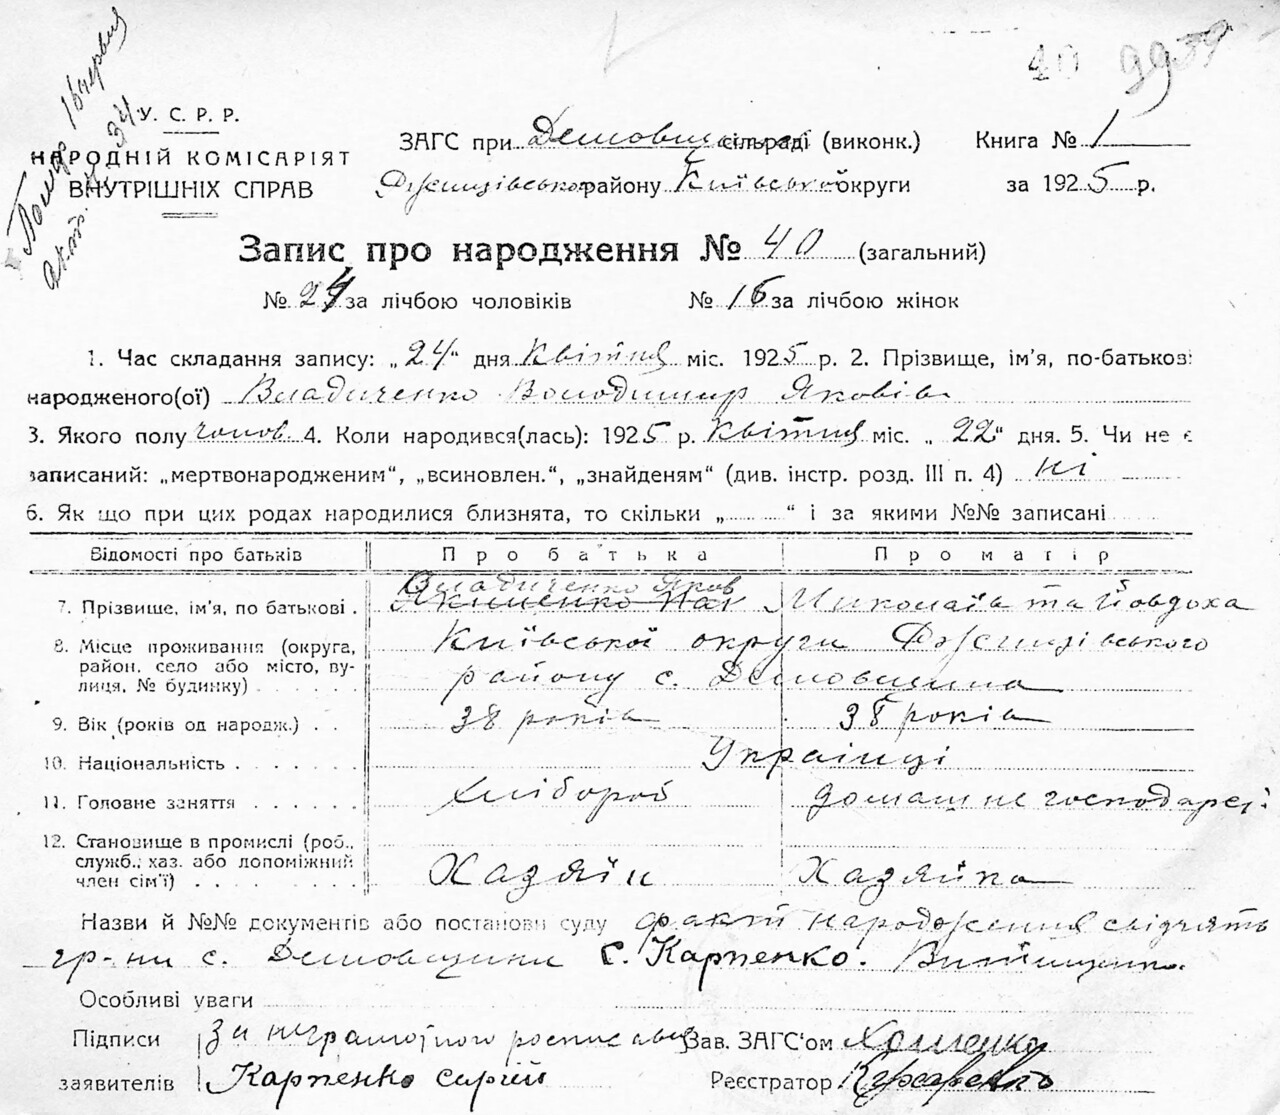 40 9939
Помер 16 червня
акт. 34
У. С. Р. Р.
НАРОДНІЙ КОМІСАРІЯТ
ВНУТРІШНІХ СПРАВ
ЗАГС при сільраді (виконк.)
Книга № 1
району Київської округи
за 1925 р.
Запис про народження № 40 (загальний)
№ 24 за лічбою чоловіків № 16 за лічбою жінок
1. Час складання запису: „24“ дня Квітня міс. 1925 р. 2. Прізвище, ім'я, по-батькові
народженого(ої) Владиченко Володимир Яковів
3. Якого полу чолов. 4. Коли народився(лась): 1925 р. Квітня міс. „22“ дня. 5. Чи не є
записаний: „мертвонародженим“, „всиновлен.“, „знайденям“ (див. інстр. розд. III п. 4) ні
6. Як що при цих родах народилися близнята, то скільки „ “ і за якими №№ записані
Відомості про батьків Про батька Про матір
Владиченко Яков
7. Прізвище, ім'я, по батькові . Миколаїв та Йовдоха
8. Місце проживання (округа, Київської округи
район, село або місто, ву- району с. Демовщина
лиця, № будинку)
9. Вік (років од народж.) . . 38 років 38 років
10. Національність Українці
11. Головне заняття Хлібороб домашнє господарс.
12. Становище в промислі (роб.,
служб., хаз. або допоміжний Хазяїн Хазяйка
член сім'ї)
Назви й №№ документів або постанови суду факт народження свідчять
гр-ни с. Демовщини С. Карпенко.
Особливі уваги
Підписи За неграмотного росписався Зав. ЗАГС'ом Хоменко
заявителів Карпенко Сергій Реєстратор